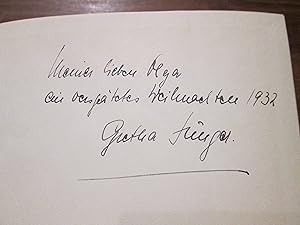 Meiner lieben Olga
ein verspätetes Weihnachten 1932
Gretha Jünger.